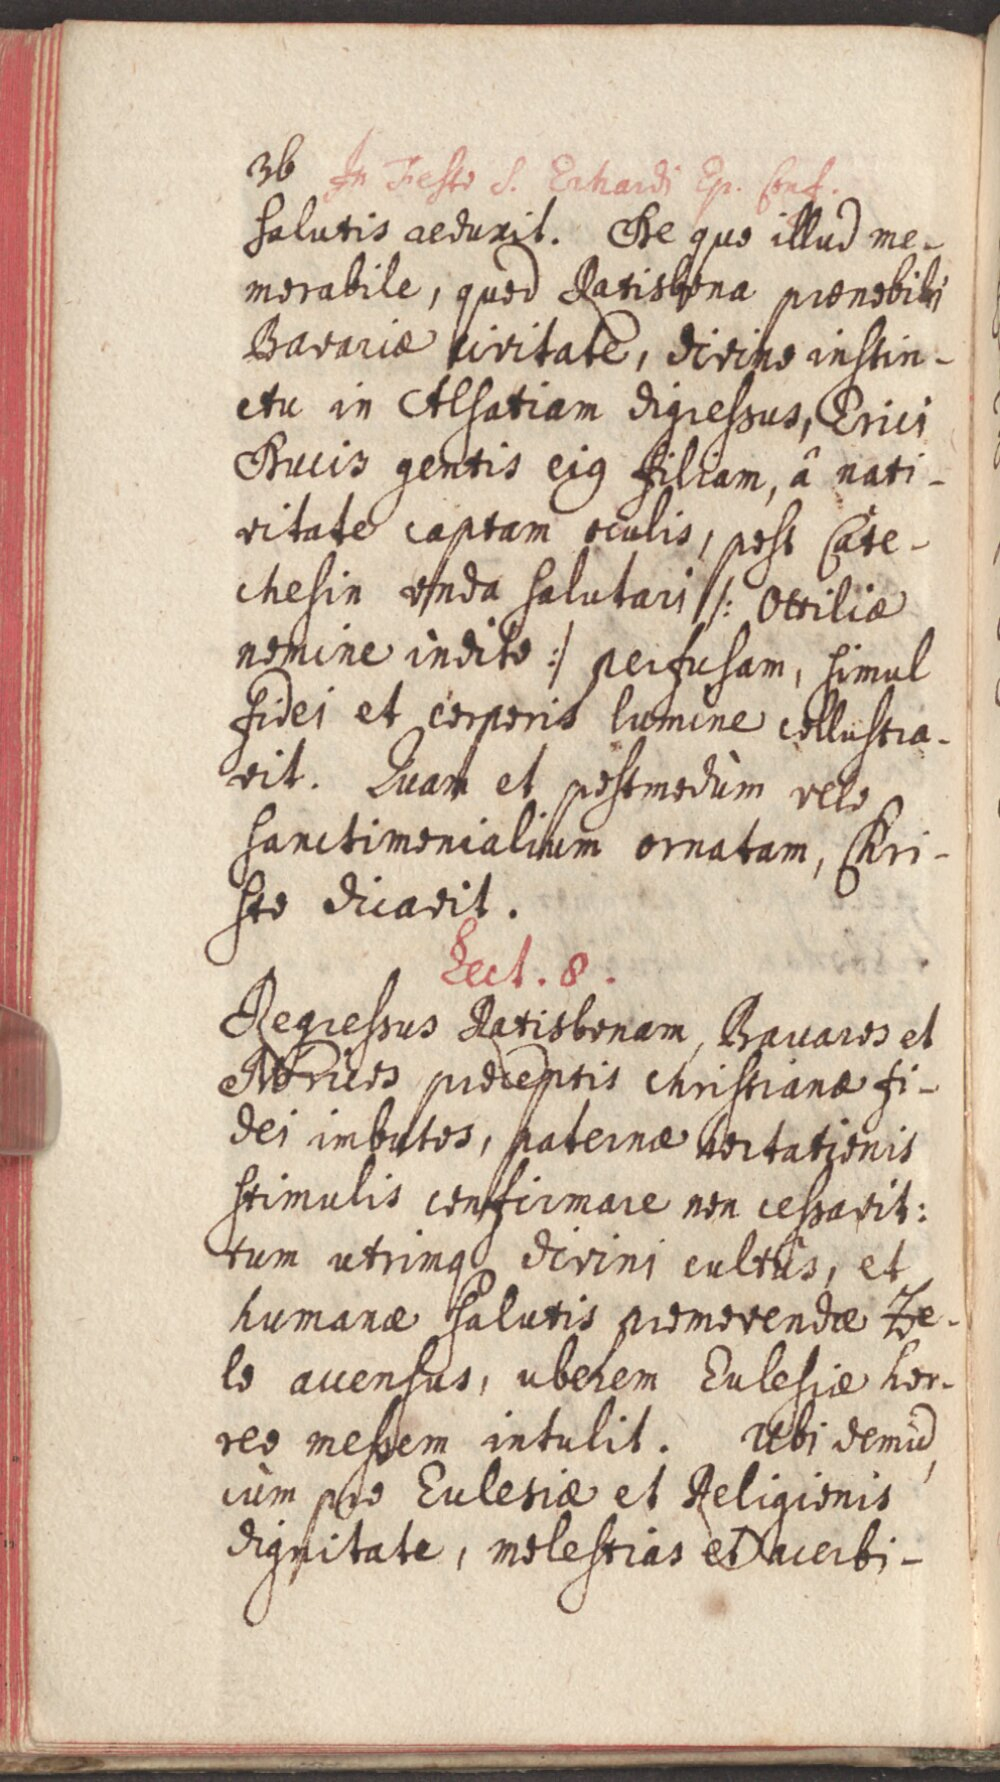 36 In Festo S. Erhardi Ep. Conf.
Salutis aeduxit. De quo illud me-
morabile, quod Ratisbona prænobili
Bavariæ civitate, divino instin-
ctu in Alsatiam digressus, Erici
Ducis gentis eiꝯ filiam, â nati-
vitate captam oculis, post Cate-
chesin onda salutari /: Ottiliæ
nomine indito :/ perfusam, simul
fidei et corporis lumine collustra-
vit. Quam et postmodùm velo
sanctimonialium ornatam, Chri-
sto dicavit.
Lect. 8.
Regressus Ratisbonam, Bauaros et
Noricos præceptis christianæ fi-
dei imbutos, paternæ hortationis
stimulis confirmare non cessavit:
tum utrimq divini cultûs, et
humanæ salutis promovendæ Ze-
lo accensus, uberem Ecclesiæ hor-
reo messem intulit. Ubi demũ,
cùm pro Ecclesiæ et Religionis
dignitate, molestias et acerbi-